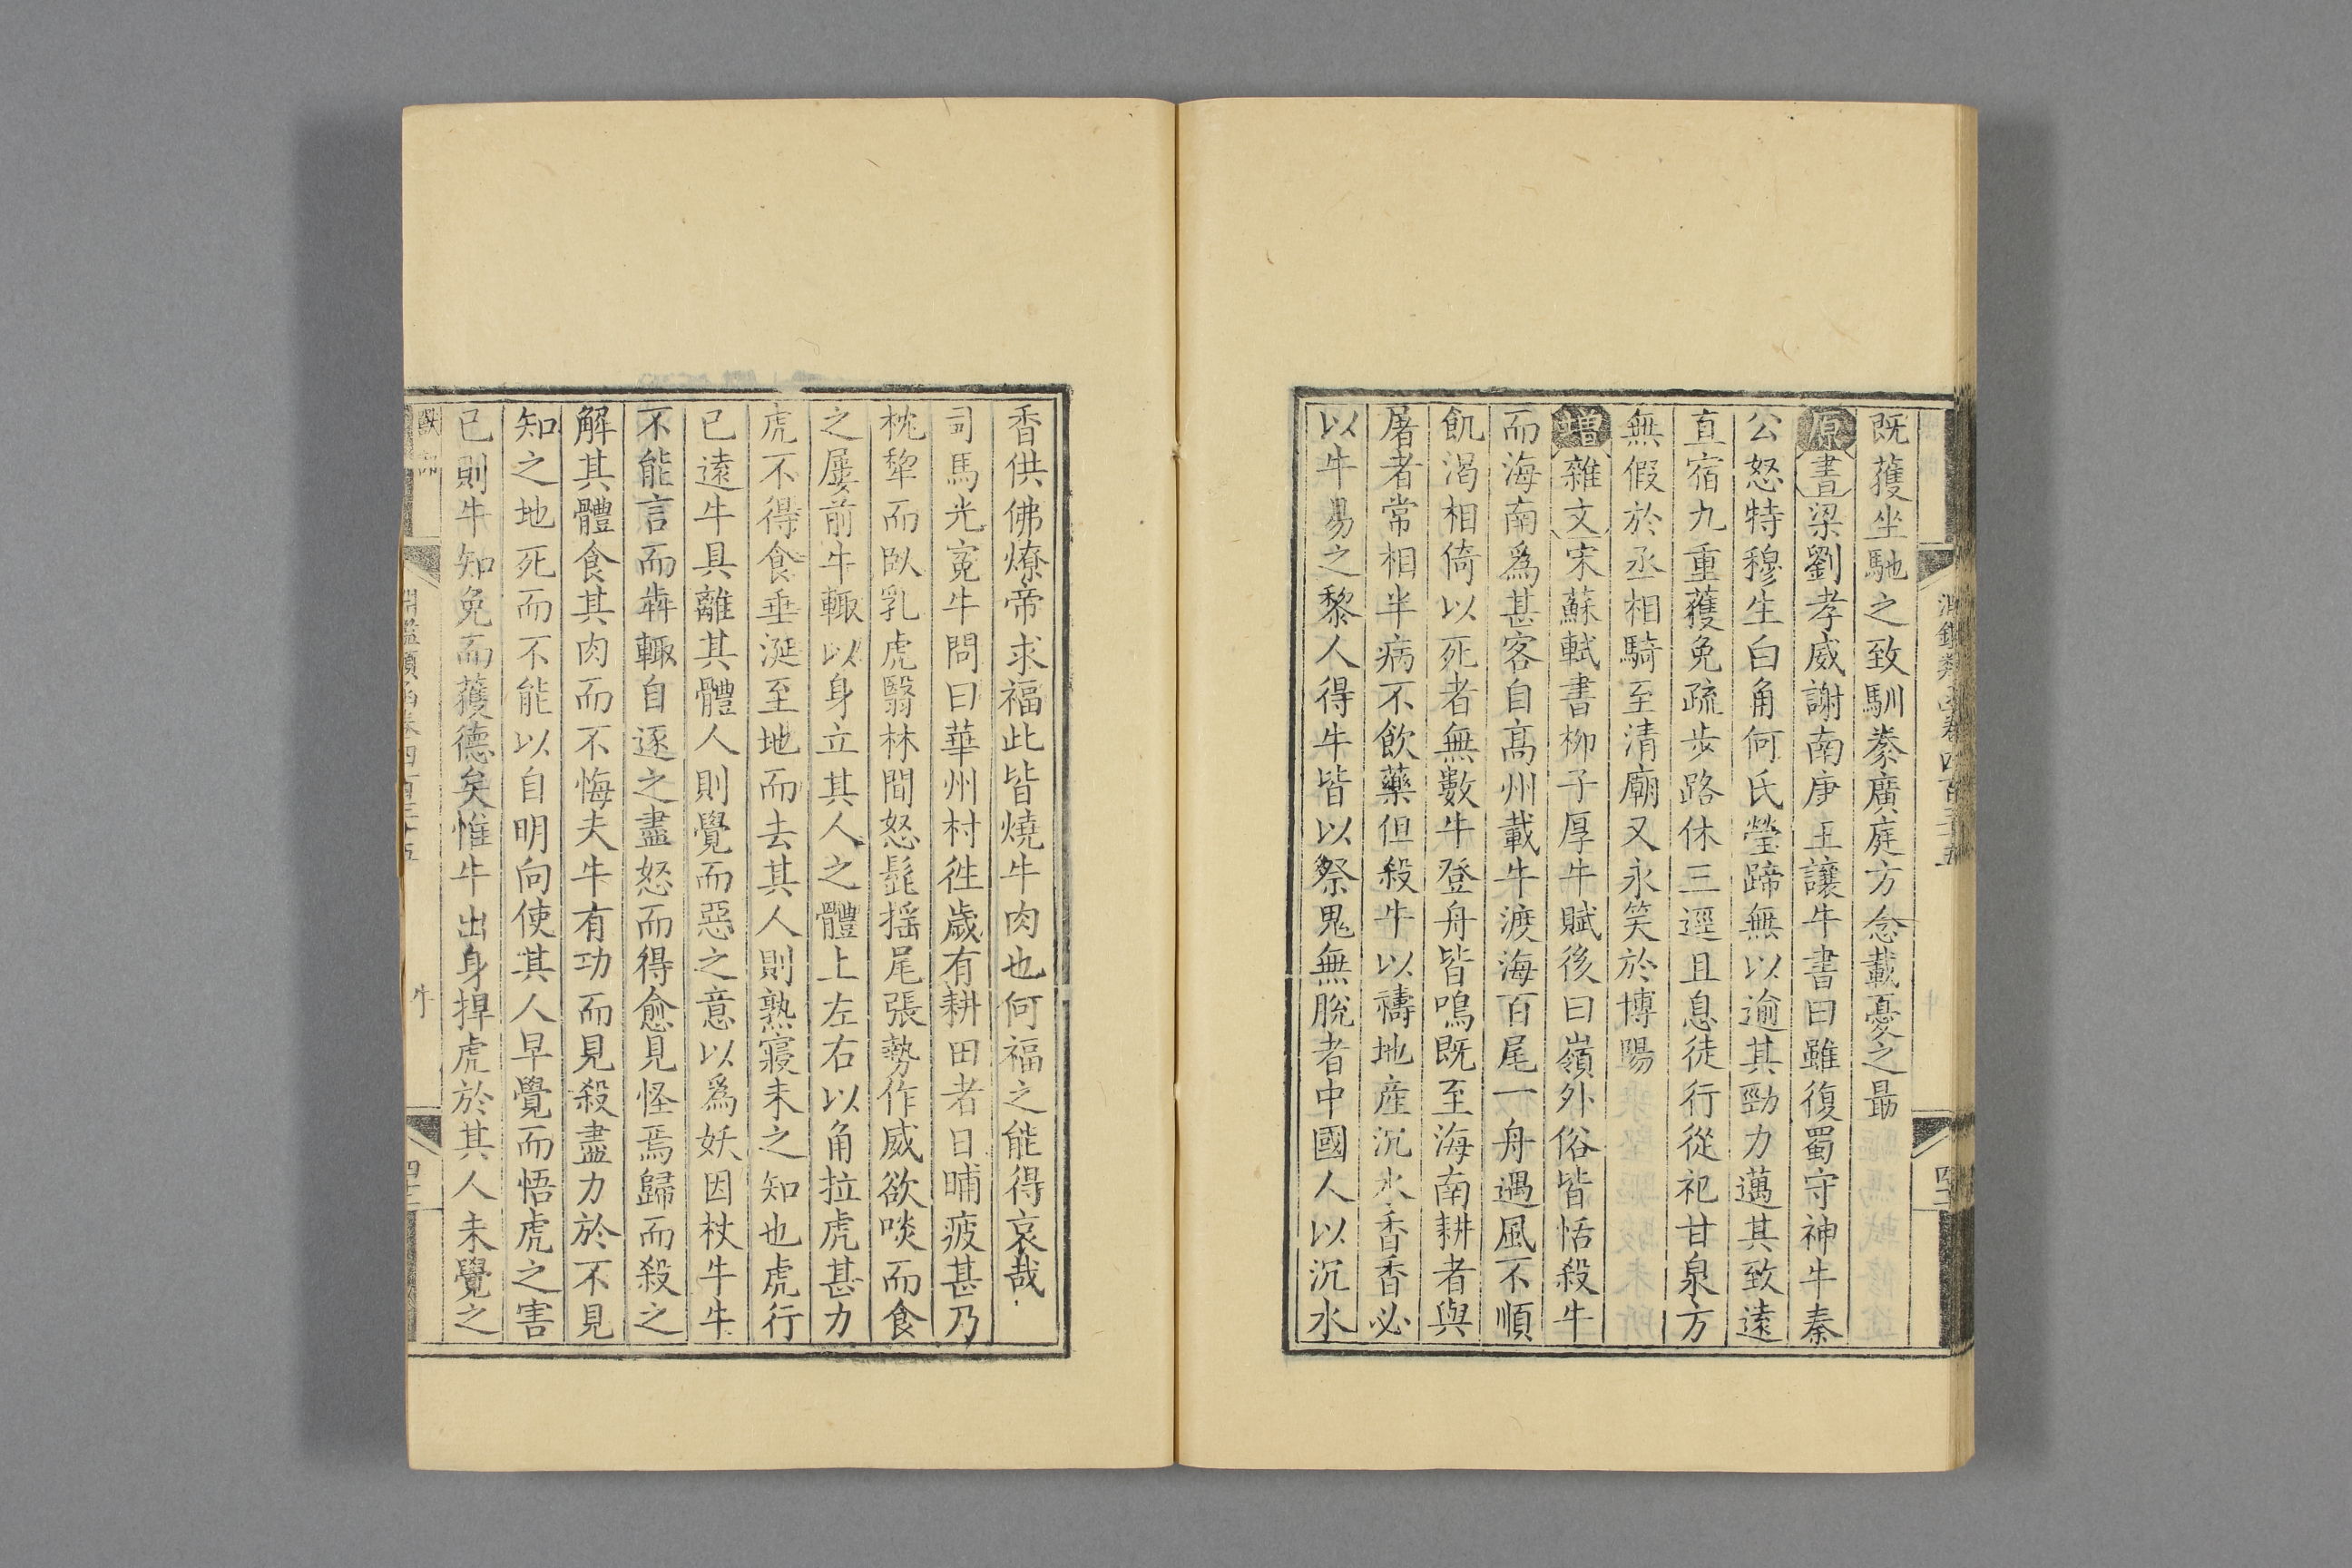 淵鑑類函卷四百三十五
既獲坐馳之致馴豢廣庭方念載憂之最
原書梁劉孝威謝南康王讓牛書曰雖復蜀守神牛秦
公怒特穆生白角何氏瑩蹄無以逾其勁力邁其致遠
直宿九重獲免疏步路休三逕且息徒行從祀甘泉方
無假於丞相騎至清廟又永笑於博陽
增雜文宋蘇軾書柳子厚牛賦後曰嶺外俗皆恬殺牛
而海南爲甚客自高州載牛渡海百尾一舟遇風不順
飢渴相倚以死者無數牛登舟皆鳴既至海南耕者與
屠者常相半病不飲藥但殺牛以禱地産沉水香香必
以牛易之黎人得牛皆以祭鬼無脫者中國人以沉水
香供佛燎帝求福此皆燒牛肉也何福之能得哀哉
司馬光寃牛問曰華州村徃歲有耕田者日晡疲甚乃
枕犂而臥乳虎翳林間怒髭揺尾張勢作威欲啖而食
之屢前牛輒以身立其人之體上左右以角拉虎甚力
虎不得食垂涎至地而去其人則熟寢未之知也虎行
已遠牛具離其體人則覺而惡之意以爲妖因杖牛牛
不能言而犇輒自逐之盡怒而得愈見怪焉歸而殺之
解其體食其肉而不悔夫牛有功而見殺盡力於不見
知之地死而不能以自明向使其人早覺而悟虎之害
已則牛知免而獲德矣惟牛出身捍虎於其人未覺之
淵鑑類函卷四百三十五
牛